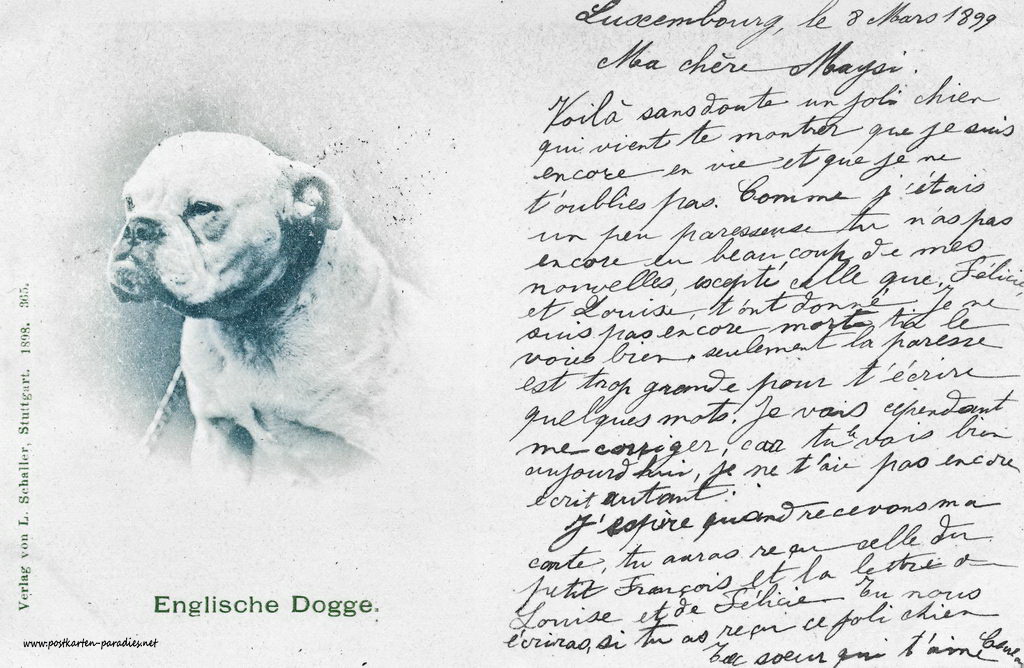 Luxembourg, le 8 Mars 1899
Ma chère Maysi.
Voilà sans doute un joli chien
qui vient te montrer que je suis
encore en vie et que je ne
t'oublies pas. Comme j'étais
un peu paresseuse tu n'as pas
encore eu beaucoup de mes
nouvelles, excepté celle que Félicie
et Louise, t'ont donné. Je ne
suis pas encore morte, tu le
vois bien, seulement la paresse
est trop grande pour t'écrire
quelques mots. Je vais cependant
me corriger, car tu le vois bien
aujourd'hui, je ne t'aie pas encore
écrit autant.
J'espère quand recevons ma
carte, tu auras reçu celle du
petit François et la lettre de
Louise et de Félicie. Tu nous
écriras, si tu as reçu ce joli chien
Ta soeur qui t'aime
Englische Dogge.
Verlag von L. Schaller, Stuttgart. 1898. 365.
www.postkarten-paradies.net